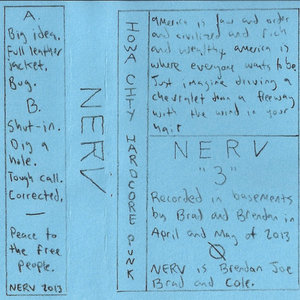 A.
Big idea.
Full leather
jacket.
Bug.
B.
Shut-in.
Dig a
hole.
Tough call.
Corrected.
—
Peace to
the free
people.
NERV 2013
NERV
IOWA CITY HARDCORE PUNK
america is law and order
and civilized and rich
and wealthy america is
where everyone wants to be
Just imagine driving a
chevrolet down a freeway
with the wind in your
hair
NERV
"3"
Recorded in basements
by Brad and Brendan in
April and May of 2013
NERV is Brendan Joe
Brad and Cole.